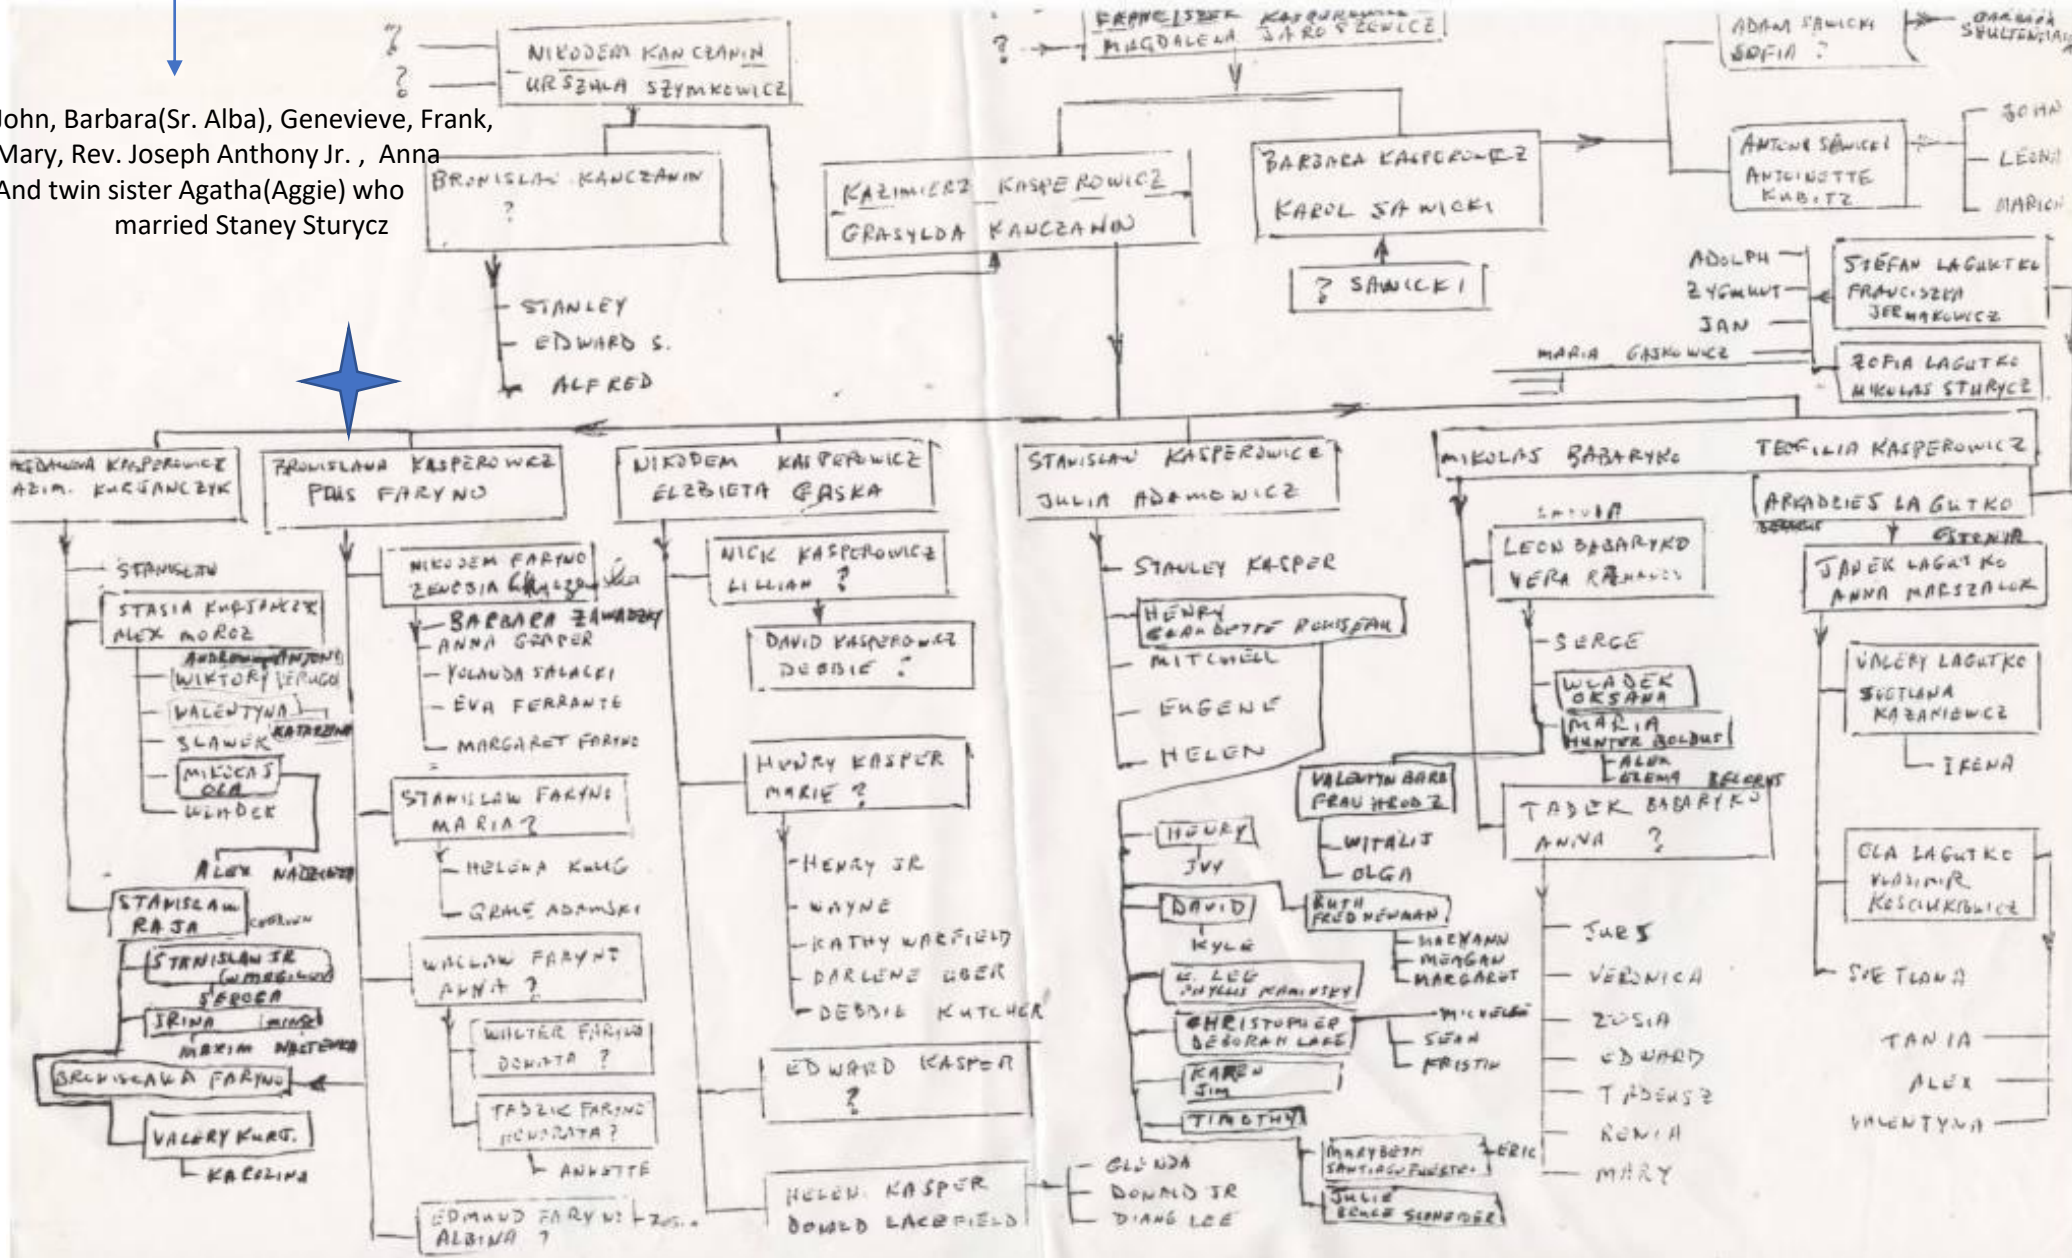 ?
?
NIKODEM KANCZANIN
URSZULA SZYMKOWICZ
?
FRANCISZEK KASPEROWICZ
MAGDALENA JAROSZEWICZ
ADAM SAWICKI
SOFIA ?
BARBARA
John, Barbara(Sr. Alba), Genevieve, Frank,
Mary, Rev. Joseph Anthony Jr. , Anna
And twin sister Agatha(Aggie) who
married Staney Sturycz
BRONISLAW KANCZANIN
?
KAZIMIERZ KASPEROWICZ
GRASYLDA KANCZANIN
BARBARA KASPEROWICZ
KAROL SAWICKI
ANTONI SAWICKI
ANTOINETTE
KUBITZ
JOHN
LEONA
MARION
? SAWICKI
STANLEY
EDWARD S.
ALFRED
ADOLPH
ZYGMUNT
JAN
MARIA GASKOWICZ
STEFAN LAGUTKO
FRANCISZKA
JERMAKOWICZ
ZOFIA LAGUTKO
MIKOLAS STURYCZ
KASPEROWICZ
AZIM. KURJANCZYK
BRONISLAWA KASPEROWICZ
PAUS FARYNO
NIKODEM KASPEROWICZ
ELZBIETA GASKA
STANISLAW KASPEROWICZ
JULIA ADAMOWICZ
MIKOLAS BABARYKO TEOFILIA KASPEROWICZ
ARKADZIES LAGUTKO
STANISLAW
STASIA KURJANCZYK
ALEX MOROZ
WIKTOR
WALENTYNA
SLAWEK
MIKOLAJ
OLA
WLADEK
ALEX
STANISLAW
RAJA
STANISLAW JR
SEROGA
IRINA (MINSK)
MAXIM
BRONISLAWA FARYNO
VALERY KURJ.
KAROLINA
NIKODEM FARYNO
ZENOBIA
BARBARA ZAWADZKY
ANNA GRAPER
YOLANDA SALACKI
EVA FERRANTE
MARGARET FARYNO
STANISLAW FARYNO
MARIA ?
HELENA KLUG
GRACE ADAMSKI
WACLAW FARYNO
ANNA ?
WALTER FARYNO
DONATA ?
TADZIK FARYNO
HONORATA ?
ANNETTE
EDMUND FARYNO
ALBINA ?
NICK KASPEROWICZ
LILLIAN ?
DAVID KASPEROWICZ
DEBBIE ?
HENRY KASPER
MARIE ?
HENRY JR
WAYNE
KATHY WARFIELD
DARLENE UBER
DEBBIE KUTCHER
EDWARD KASPER
?
HELEN KASPER
DONALD LACEFIELD
GLENDA
DONALD JR
DIANE LEE
STANLEY KASPER
HENRY
CLAUDETTE ROUSSEAU
MITCHELL
EUGENE
HELEN
HENRY
IVY
DAVID
KYLE
RUTH
FRED NEWMAN
MARYANN
MEAGAN
MARGARET
E. LEE
PHYLLIS KAMINSKY
CHRISTOPHER
DEBORAH LAKE
MICHELLE
SEAN
KRISTIN
KAREN
JIM
TIMOTHY
MARYBETH
ERIC
JULIE
BRUCE SCHNEIDER
LATVIA
LEON BABARYKO
VERA
SERGE
WLADEK
OKSANA
MARIA
HUNTER BOLDUS
ALEX
VALENTYN BARB
WITALIJ
OLGA
BELARUS
TADEK BABARYKO
ANNA ?
JURS
VERONICA
ZOSIA
EDWARD
TADEUSZ
RENIA
MARY
ESTONIA
JANEK LAGUTKO
ANNA MARSZALEK
VALERY LAGUTKO
SVETLANA
KAZANIEWCZ
IRENA
OLA LAGUTKO
VLADIMIR
KOSCIUKIEWICZ
SVETLANA
TANIA
ALEX
VALENTYNA